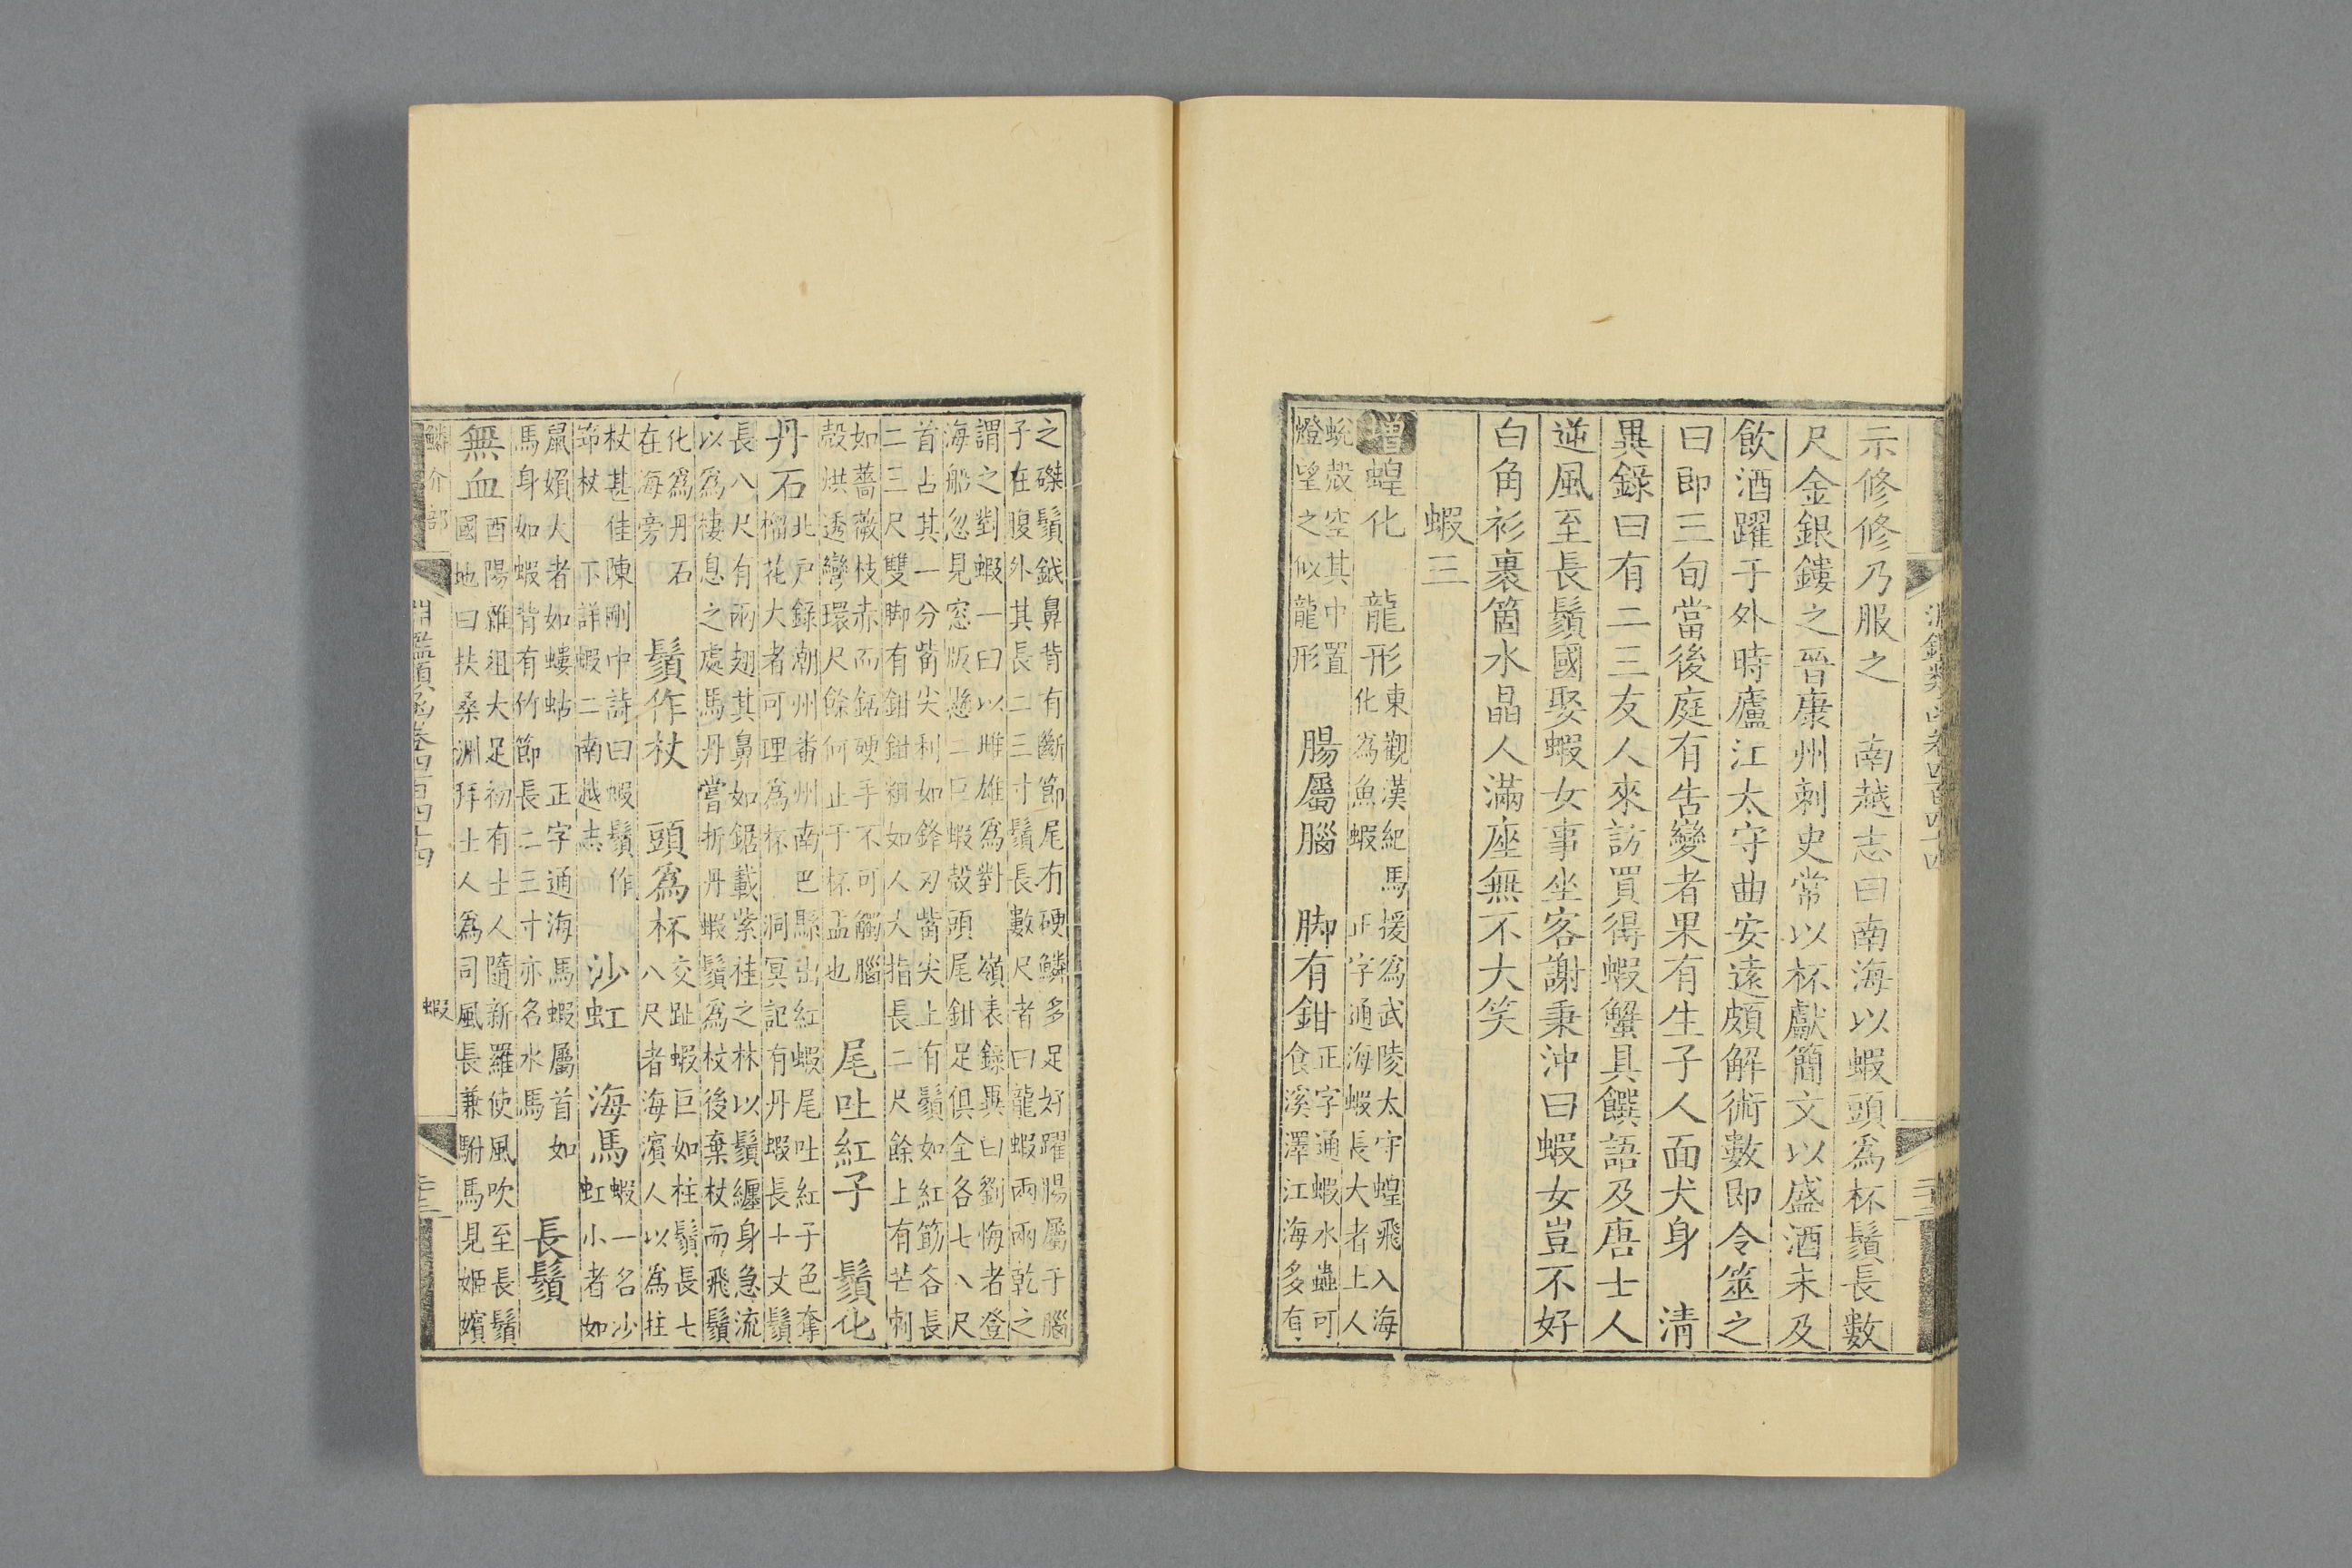 示修修乃服之　南越志曰南海以蝦頭爲杯鬚長數
尺金銀鏤之晉康州刺史常以杯獻簡文以盛酒未及
飲酒躍于外時廬江太守曲安遠頗解術數即令筮之
曰即三旬當後庭有告變者果有生子人面犬身　清
異錄曰有二三友人來訪買得蝦蟹具饌語及唐士人
逆風至長鬚國娶蝦女事坐客謝秉沖曰蝦女豈不好
白角衫裹箇水晶人滿座無不大笑
蝦三
增蝗化　龍形
東觀漢紀馬援爲武陵太守蝗飛入海
化爲魚蝦　正字通海蝦長大者上人
蛻殼空其中置
燈望之似龍形
腸屬腦　脚有鉗
正字通蝦水蟲可
食溪澤江海多有
之磔鬚鉞鼻背有斷節尾有硬鱗多足好躍腸屬于腦
子在腹外其長二三寸鬚長數尺者曰龍蝦兩兩乾之
謂之對蝦一曰以雌雄爲對　嶺表錄異曰劉恂者登
海船忽見窓版懸二巨蝦殼頭尾鉗足俱全各七八尺
首占其一分觜尖利如鋒刃觜尖上有鬚如紅筯各長
二三尺雙脚有鉗鉗粗如人大指長二尺餘上有芒刺
如薔薇枝赤而銛硬手不可觸腦
殼烘透彎環尺餘何止于杯盂也
尾吐紅子　鬚化
丹石
北戶錄潮州番州南巴縣出紅蝦尾吐紅子色奪
榴花大者可理爲杯　洞冥記有丹蝦長十丈鬚
長八尺有兩翅其鼻如鋸載紫桂之林以鬚纏身急流
以爲棲息之處馬丹嘗折丹蝦鬚爲杖後棄杖而飛鬚
化爲丹石
在海旁
鬚作杖　頭爲杯
交趾蝦巨如柱鬚長七
八尺者海濱人以爲柱
杖甚佳陳剛中詩曰蝦鬚作
笻杖　下詳蝦二南越志
沙虹　海馬
蝦一名沙
虹小者如
鼠婦大者如螻蛄　正字通海馬蝦屬首如
馬身如蝦背有竹節長二三寸亦名水馬
長鬚
無血
酉陽雜俎大足初有士人隨新羅使風吹至長鬚
國地曰扶桑洲拜士人爲司風長兼駙馬見姬嬪
鱗介部
蝦